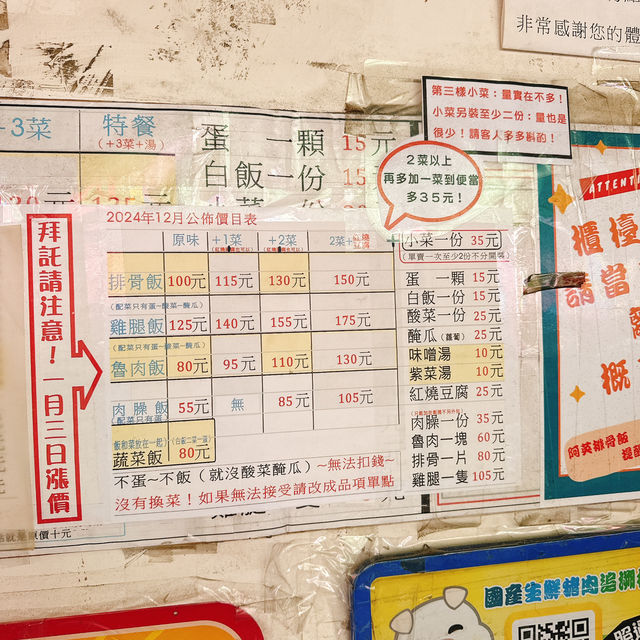 非常感謝您的體
第三樣小菜：量實在不多！
小菜另裝至少二份：量也是
很少！請客人多多斟酌！
+3菜
特餐
(+3菜+湯)
蛋 一顆 15元
白飯一份 15
2菜以上
再多加一菜到便當
多35元！
ATTENTI
櫃檯
請當
概
阿英排骨飯
拜託請注意！一月三日漲價
2024年12月公佈價目表
原味 +1菜 +2菜 2菜+紅燒豆腐
排骨飯 100元 115元 130元 150元
(配菜只有蛋~酸菜~醃瓜)
雞腿飯 125元 140元 155元 175元
(配菜只有蛋~酸菜~醃瓜)
魯肉飯 80元 95元 110元 130元
肉臊飯 55元 無 85元 105元
(配菜只有蛋)
飯和菜放在一起)(白飯二菜一蛋)
蔬菜飯 80元
不蛋~不飯(就沒酸菜醃瓜)~無法扣錢~
沒有換菜！如果無法接受請改成品項單點
小菜一份 35元
(單賣一次至少2份不分開裝)
蛋 一顆 15元
白飯一份 15元
酸菜一份 25元
醃瓜(蘿蔔) 25元
味噌湯 10元
紫菜湯 10元
紅燒豆腐 25元
肉臊一份 35元
魯肉一塊 60元
排骨一片 80元
雞腿一隻 105元
國產生鮮豬肉追溯